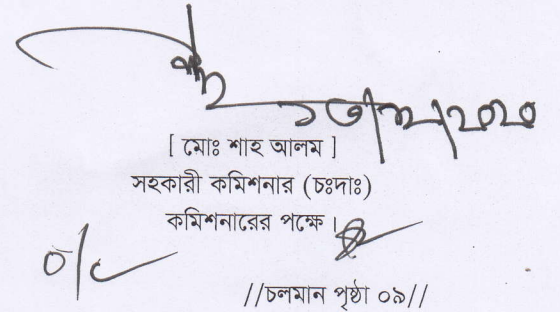 [ মোঃ শাহ আলম ]
সহকারী কমিশনার (চঃদাঃ)
কমিশনারের পক্ষে।
//চলমান পৃষ্ঠা ০৯//